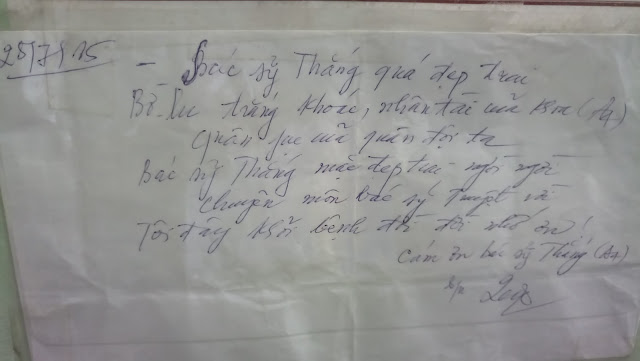 25/7/15
- Bác sỹ Thắng quá đẹp trai
Bờ Lu trắng khoác, nhân tài của Khoa (A4)
Quân của quân đội ta
Bác sỹ Thắng mặc đẹp ngời ngời
Chuyên môn bác sỹ tuyệt vời
Tôi đây khỏi bệnh đời đời nhớ ơn!
Cám ơn bác sỹ Thắng (A4)